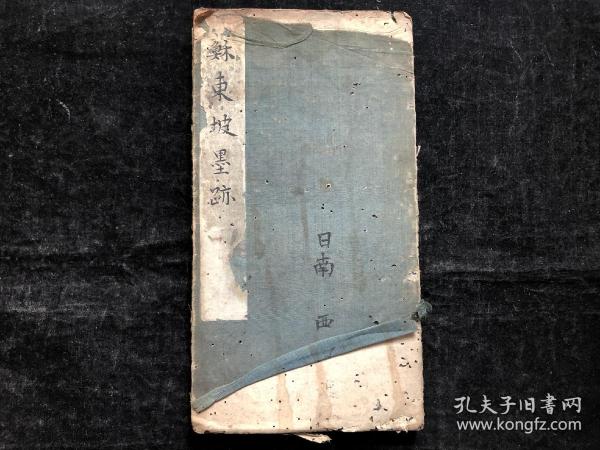 蘇東坡墨跡
日南
西
孔夫子旧書网
www.kongfz.com